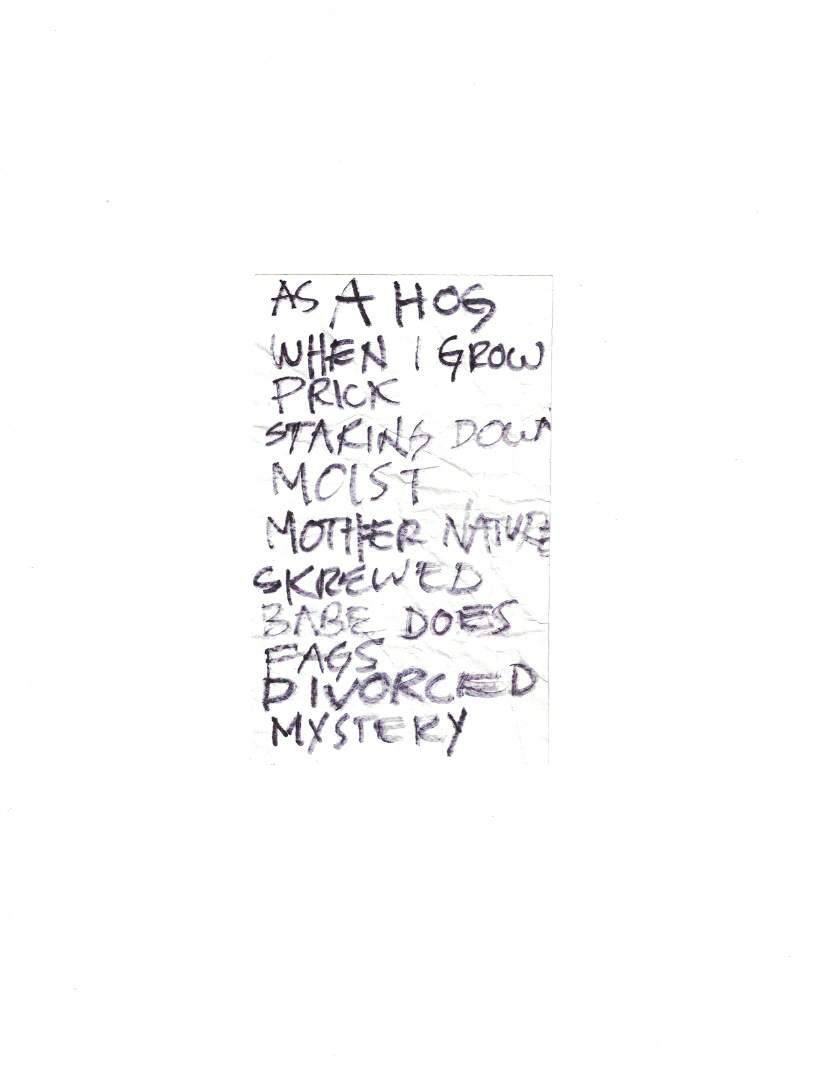 AS A HOG
WHEN I GROW
PRICK
STARING DOWN
MOIST
MOTHER NATURE
SKREWED
BABE DOES
FAGS
DIVORCED
MYSTERY